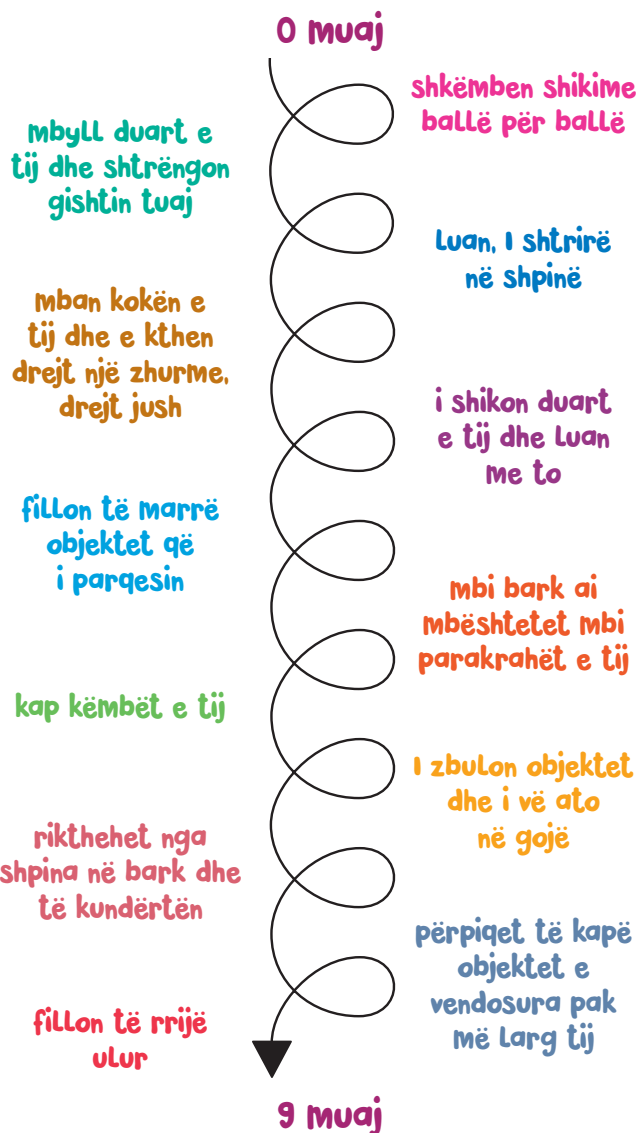 0 muaj
shkëmben shikime
ballë për ballë
mbyll duart e
tij dhe shtrëngon
gishtin tuaj
Luan, I shtrirë
në shpinë
mban kokën e
tij dhe e kthen
drejt një zhurme,
drejt jush
i shikon duart
e tij dhe Luan
me to
fillon të marrë
objektet që
i parqesin
mbi bark ai
mbështetet mbi
parakrahët e tij
kap këmbët e tij
I zbulon objektet
dhe i vë ato
në gojë
rikthehet nga
shpina në bark dhe
të kundërtën
përpiqet të kapë
objektet e
vendosura pak
më Larg tij
fillon të rrijë
ulur
9 muaj